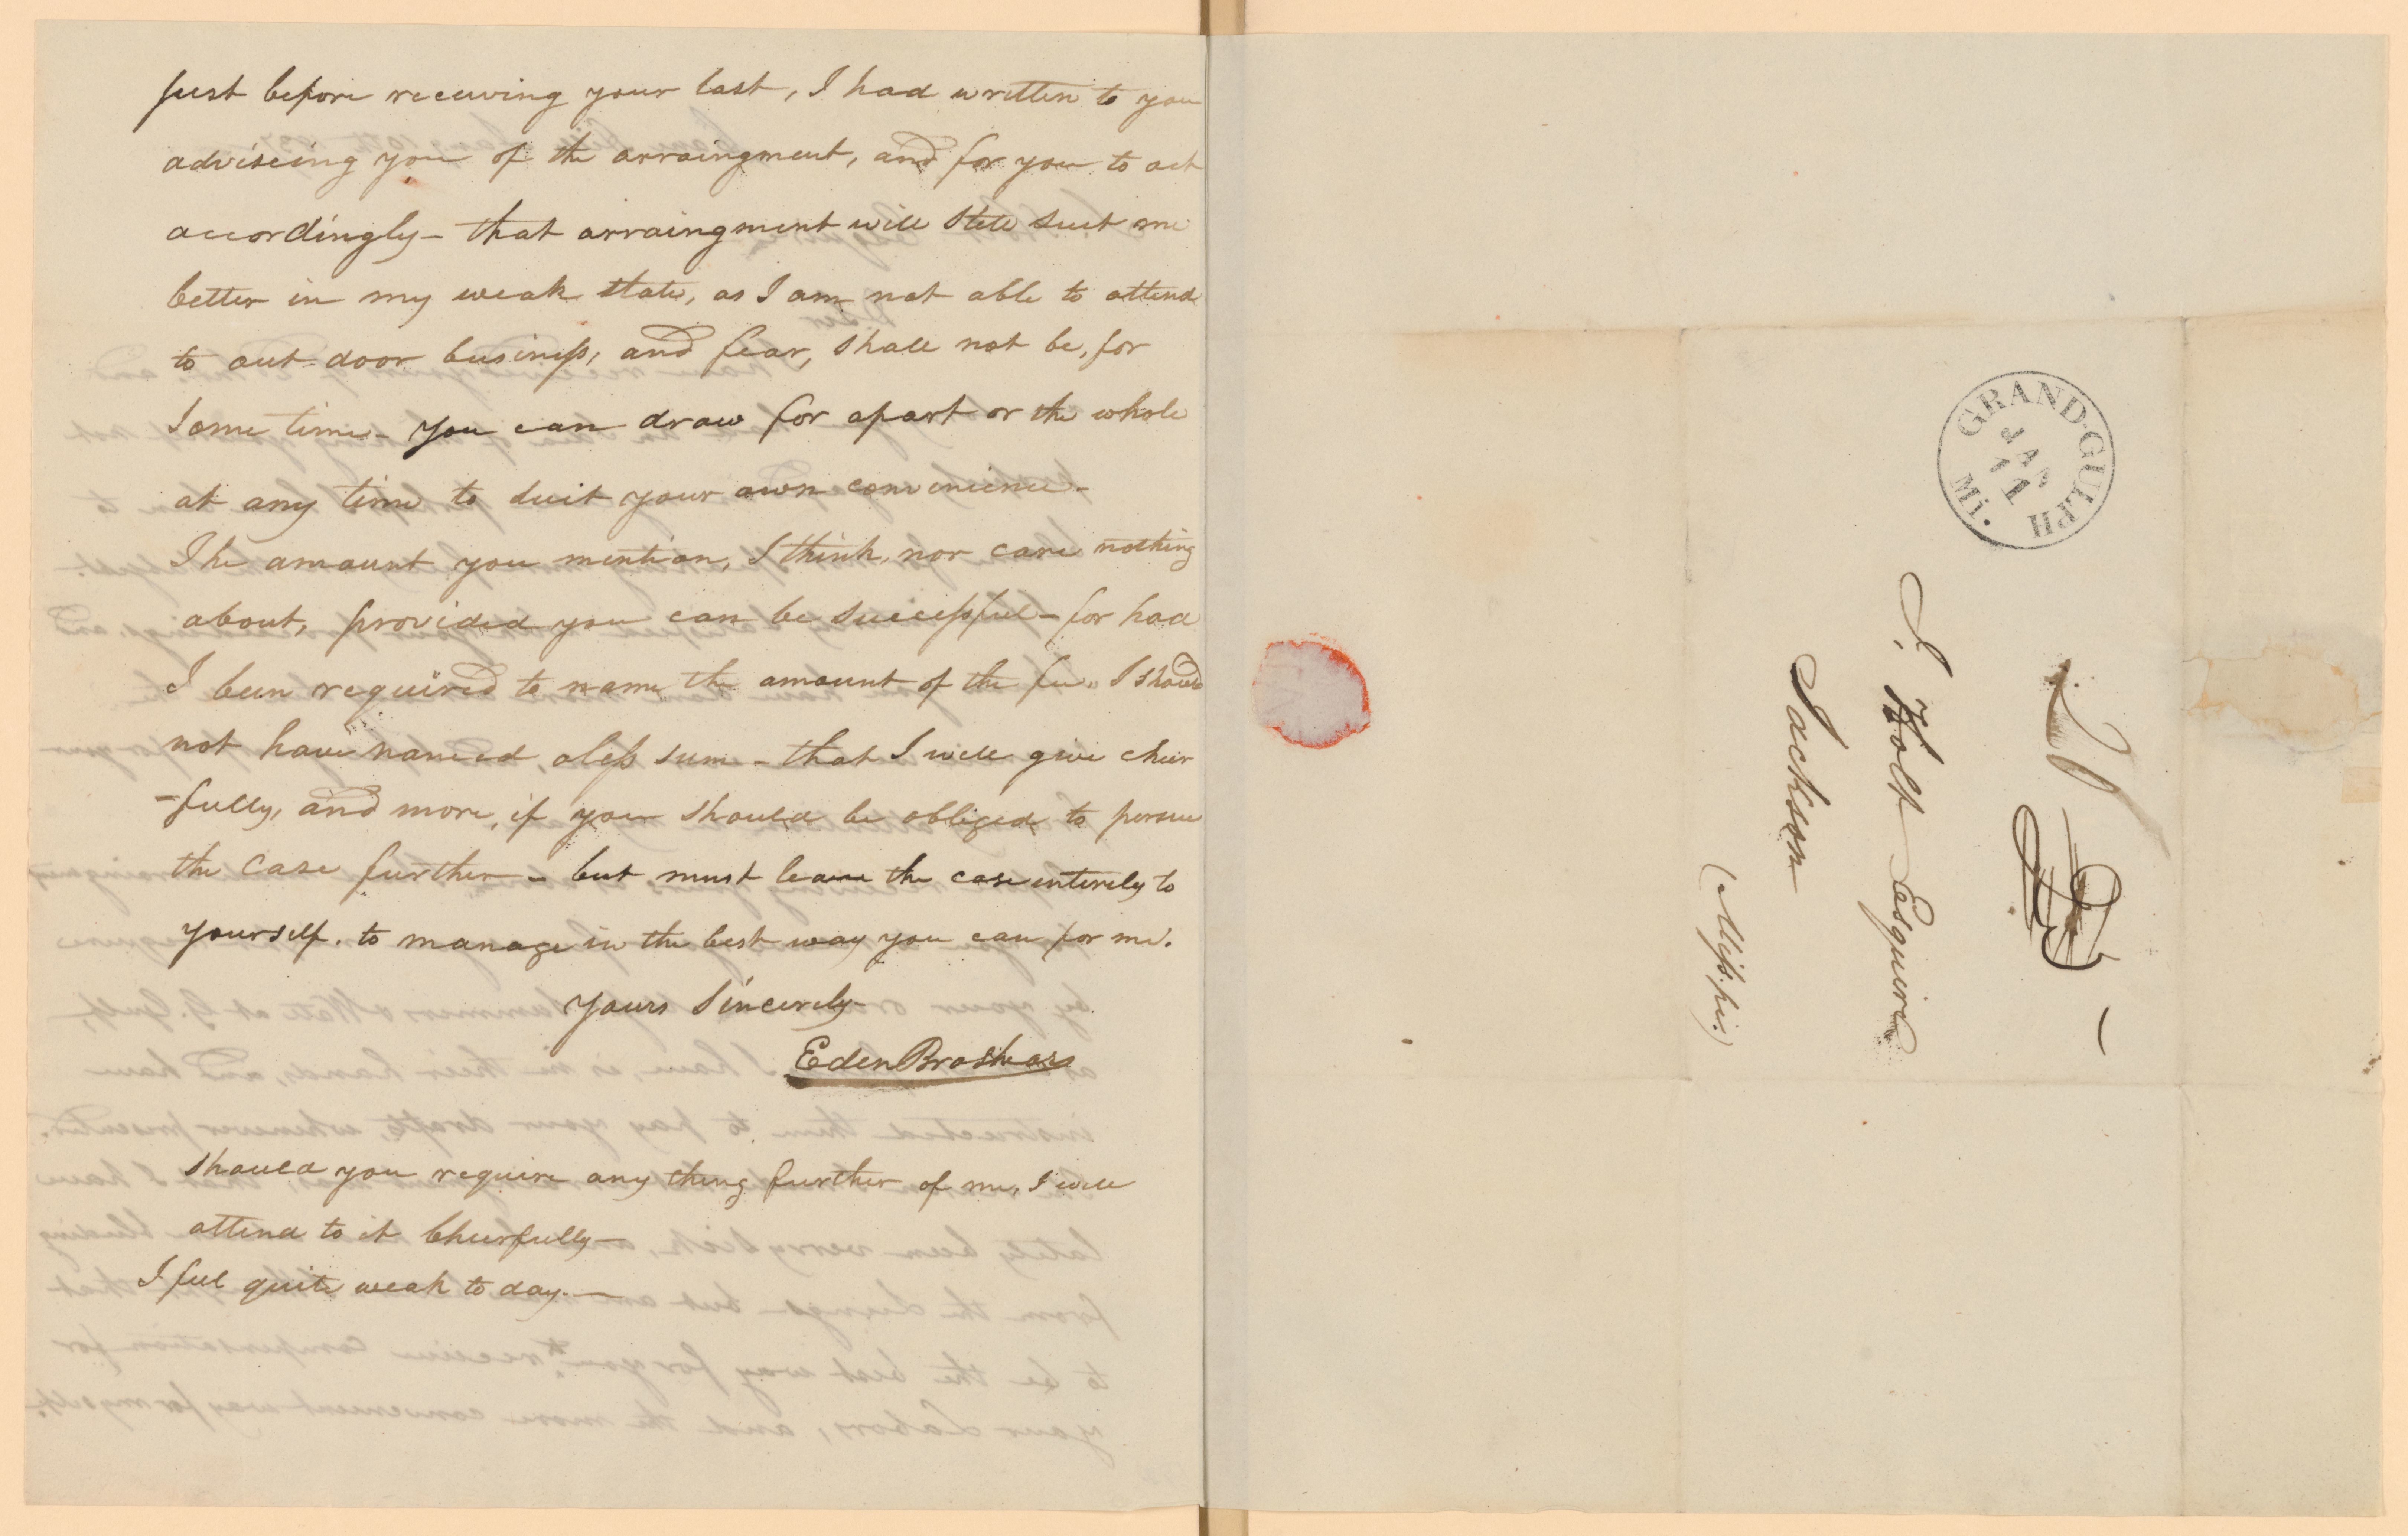 Just before receiving your last, I had written to you
adviseing you of the arraingment, and for you to act
accordingly - that arraingment will still suit me
better in my weak state, as I am not able to attend
to out door business, and fear, shall not be, for
some time - you can draw for apart or the whole
at any time to suit your own convenience -
The amount you mention, I think, nor care nothing
about, provided you can be successful - for had
I been required to name the amount of the fee. I should
not have named, aless sum - that I will give cheer
-fully, and more, if you should be obliged to persue
the case further - but must leave the case entirely to
yourself. to manage in the best way you can for me.
Yours Sincerely
Eden Brashears
Should you require any thing further of me, I will
attend to it Cheerfully -
I feel quite weak to day. -
GRAND-GULPH
JAN
11
Mi.
J. Holt Esquire
Jackson
(Missipi.)